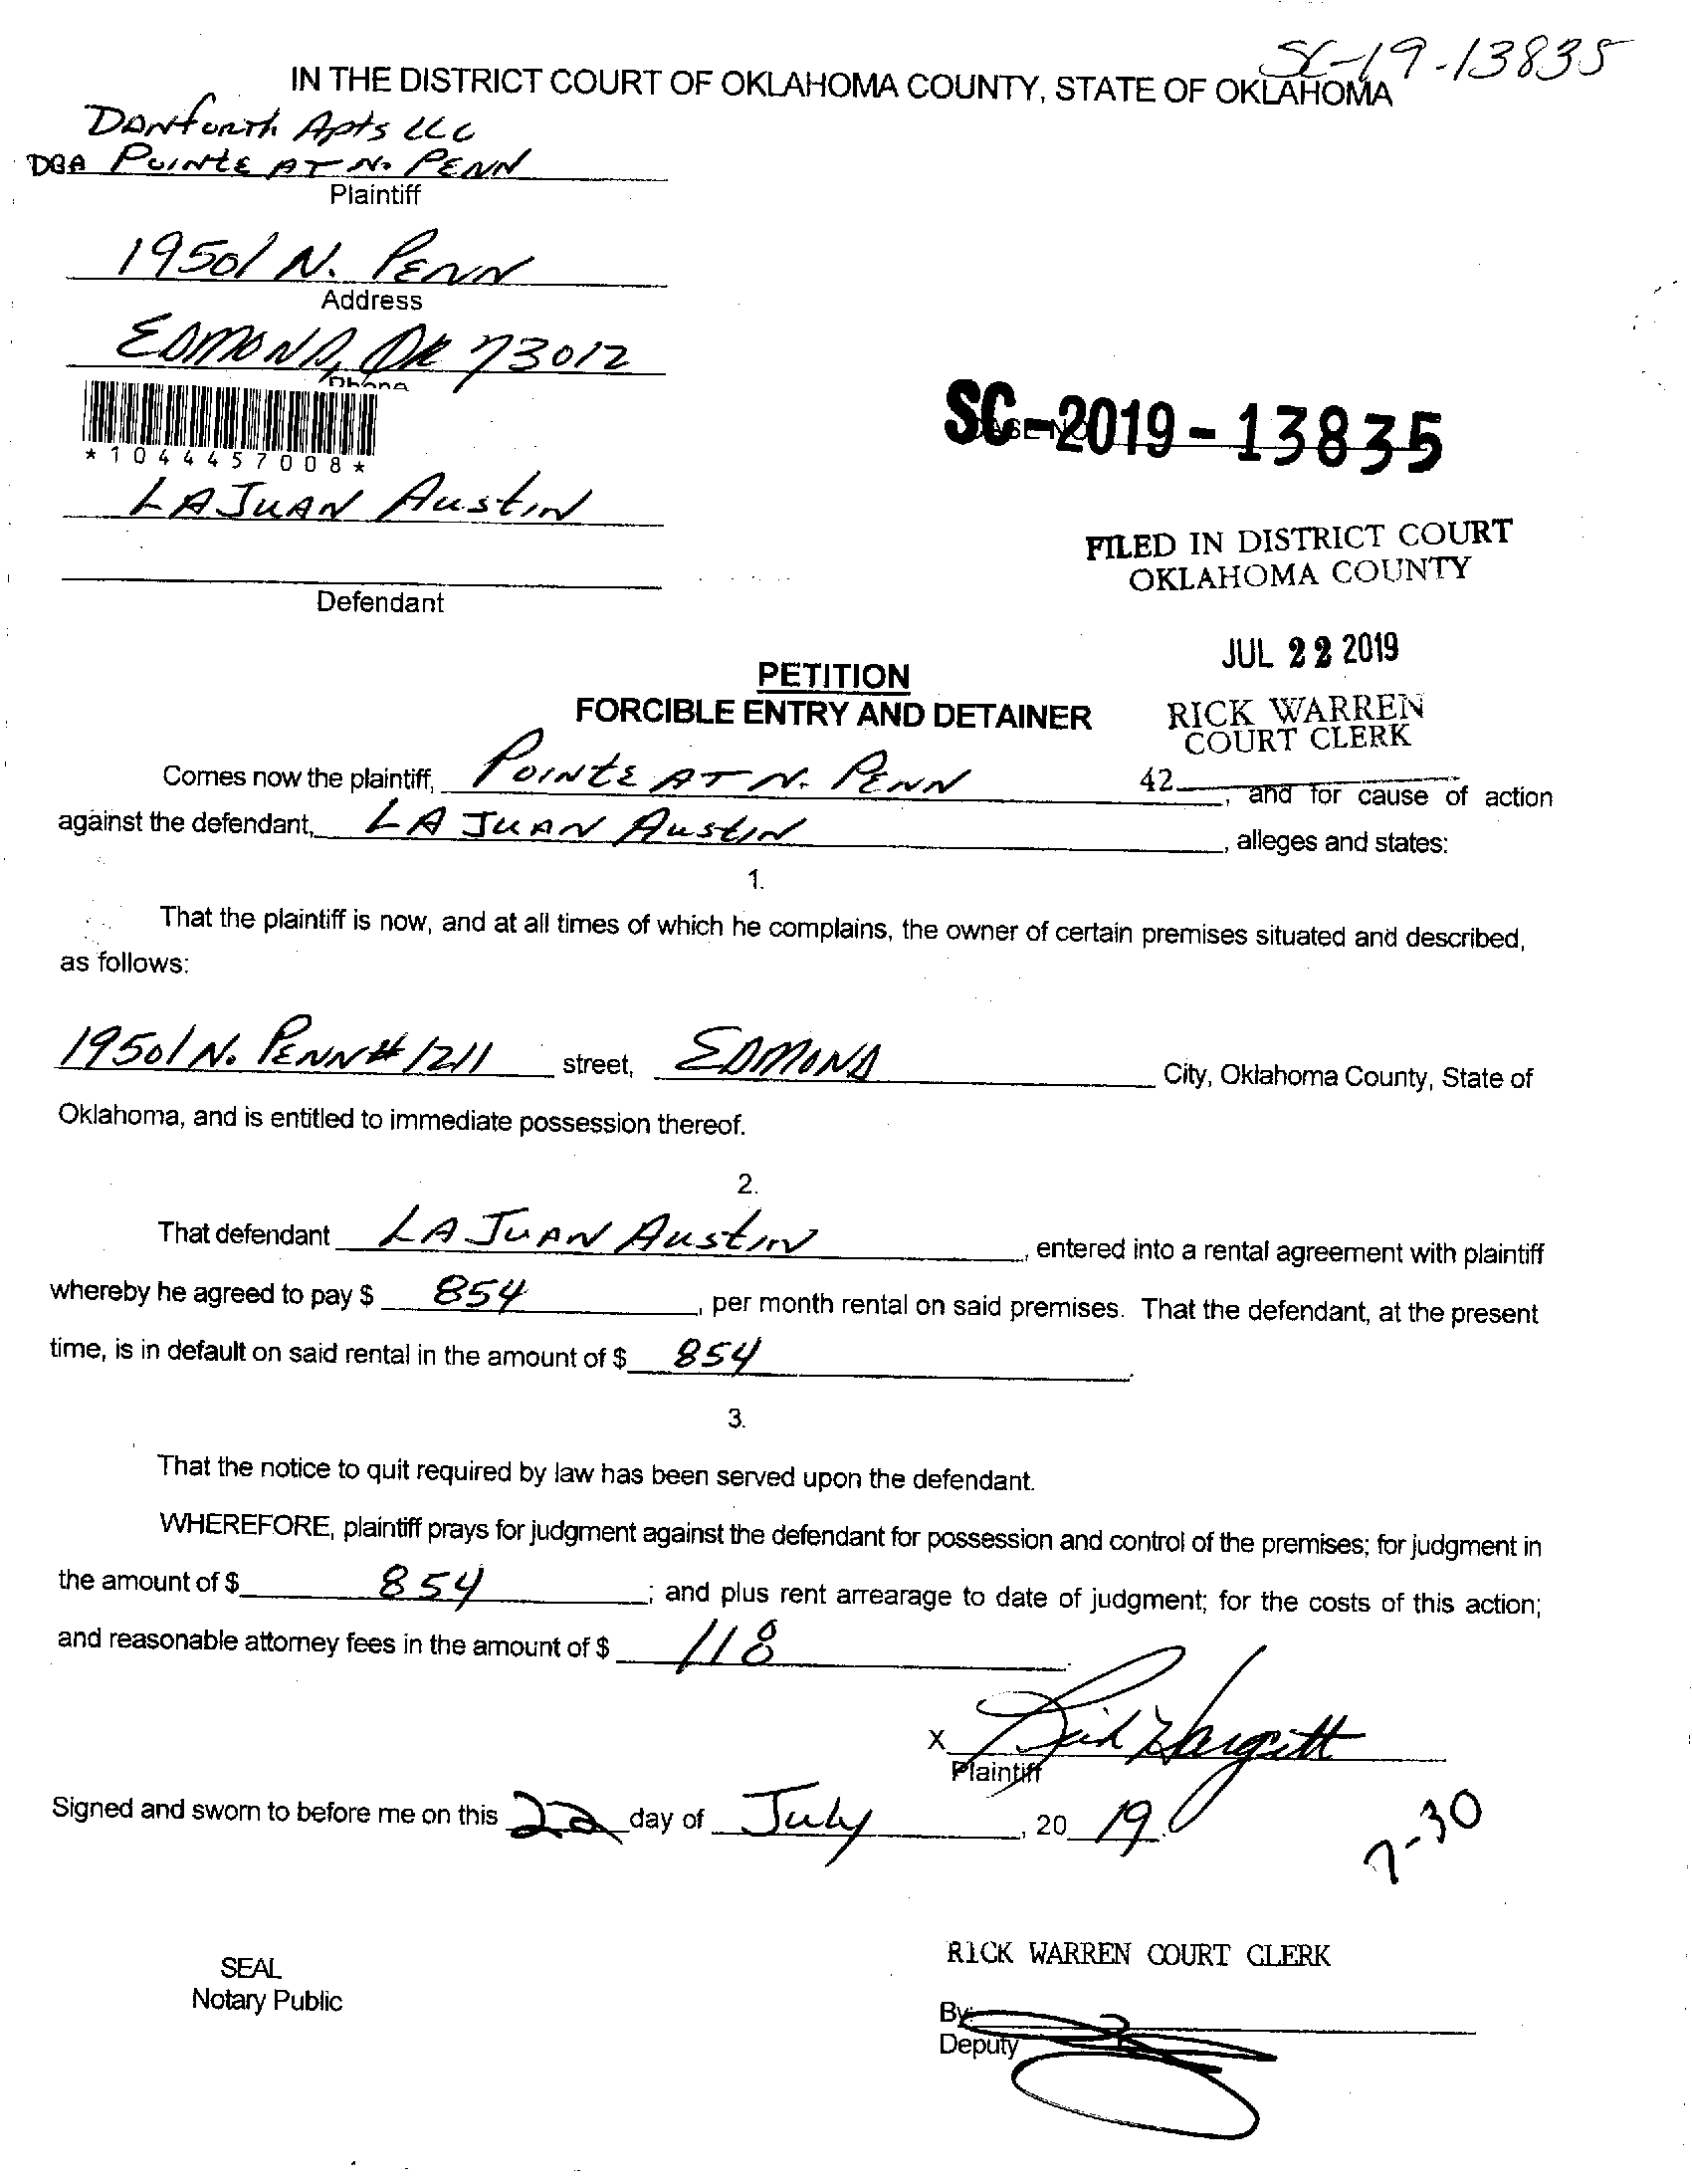 SC-19-13835
IN THE DISTRICT COURT OF OKLAHOMA COUNTY, STATE OF OKLAHOMA
Danforth Apts LLC
DBA POINTE AT N. PENN
Plaintiff
19501 N. PENN
Address
EDMOND, OK 73012
Phone
*1044457008*
SC-2019-13835
LA JUAN Austin
FILED IN DISTRICT COURT
OKLAHOMA COUNTY
Defendant
JUL 22 2019
PETITION
FORCIBLE ENTRY AND DETAINER
RICK WARREN
COURT CLERK
42
Comes now the plaintiff, POINTE AT N. PENN, and for cause of action
against the defendant, LA JUAN Austin, alleges and states:
1.
That the plaintiff is now, and at all times of which he complains, the owner of certain premises situated and described,
as follows:
19501 N. PENN # 1211 street, EDMOND City, Oklahoma County, State of
Oklahoma, and is entitled to immediate possession thereof.
2.
That defendant LA JUAN Austin, entered into a rental agreement with plaintiff
whereby he agreed to pay $ 854, per month rental on said premises. That the defendant, at the present
time, is in default on said rental in the amount of $ 854.
3.
That the notice to quit required by law has been served upon the defendant.
WHEREFORE, plaintiff prays for judgment against the defendant for possession and control of the premises; for judgment in
the amount of $ 854; and plus rent arrearage to date of judgment; for the costs of this action;
and reasonable attorney fees in the amount of $ 118.
X Hargitt
Plaintiff
Signed and sworn to before me on this 22 day of July, 20 19.
7-30
RICK WARREN COURT CLERK
SEAL
Notary Public
By:
Deputy